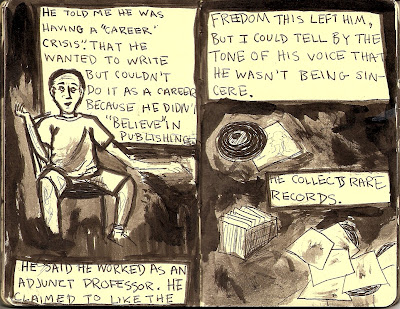 HE TOLD ME HE WAS
HAVING A "CAREER
CRISIS". THAT HE
WANTED TO WRITE
BUT COULDN'T
DO IT AS A CAREER
BECAUSE HE DIDN'T
"BELIEVE" IN
PUBLISHING.
HE SAID HE WORKED AS AN
ADJUNCT PROFESSOR. HE
CLAIMED TO LIKE THE
FREEDOM THIS LEFT HIM,
BUT I COULD TELL BY THE
TONE OF HIS VOICE THAT
HE WASN'T BEING SIN-
CERE.
HE COLLECTS RARE
RECORDS.